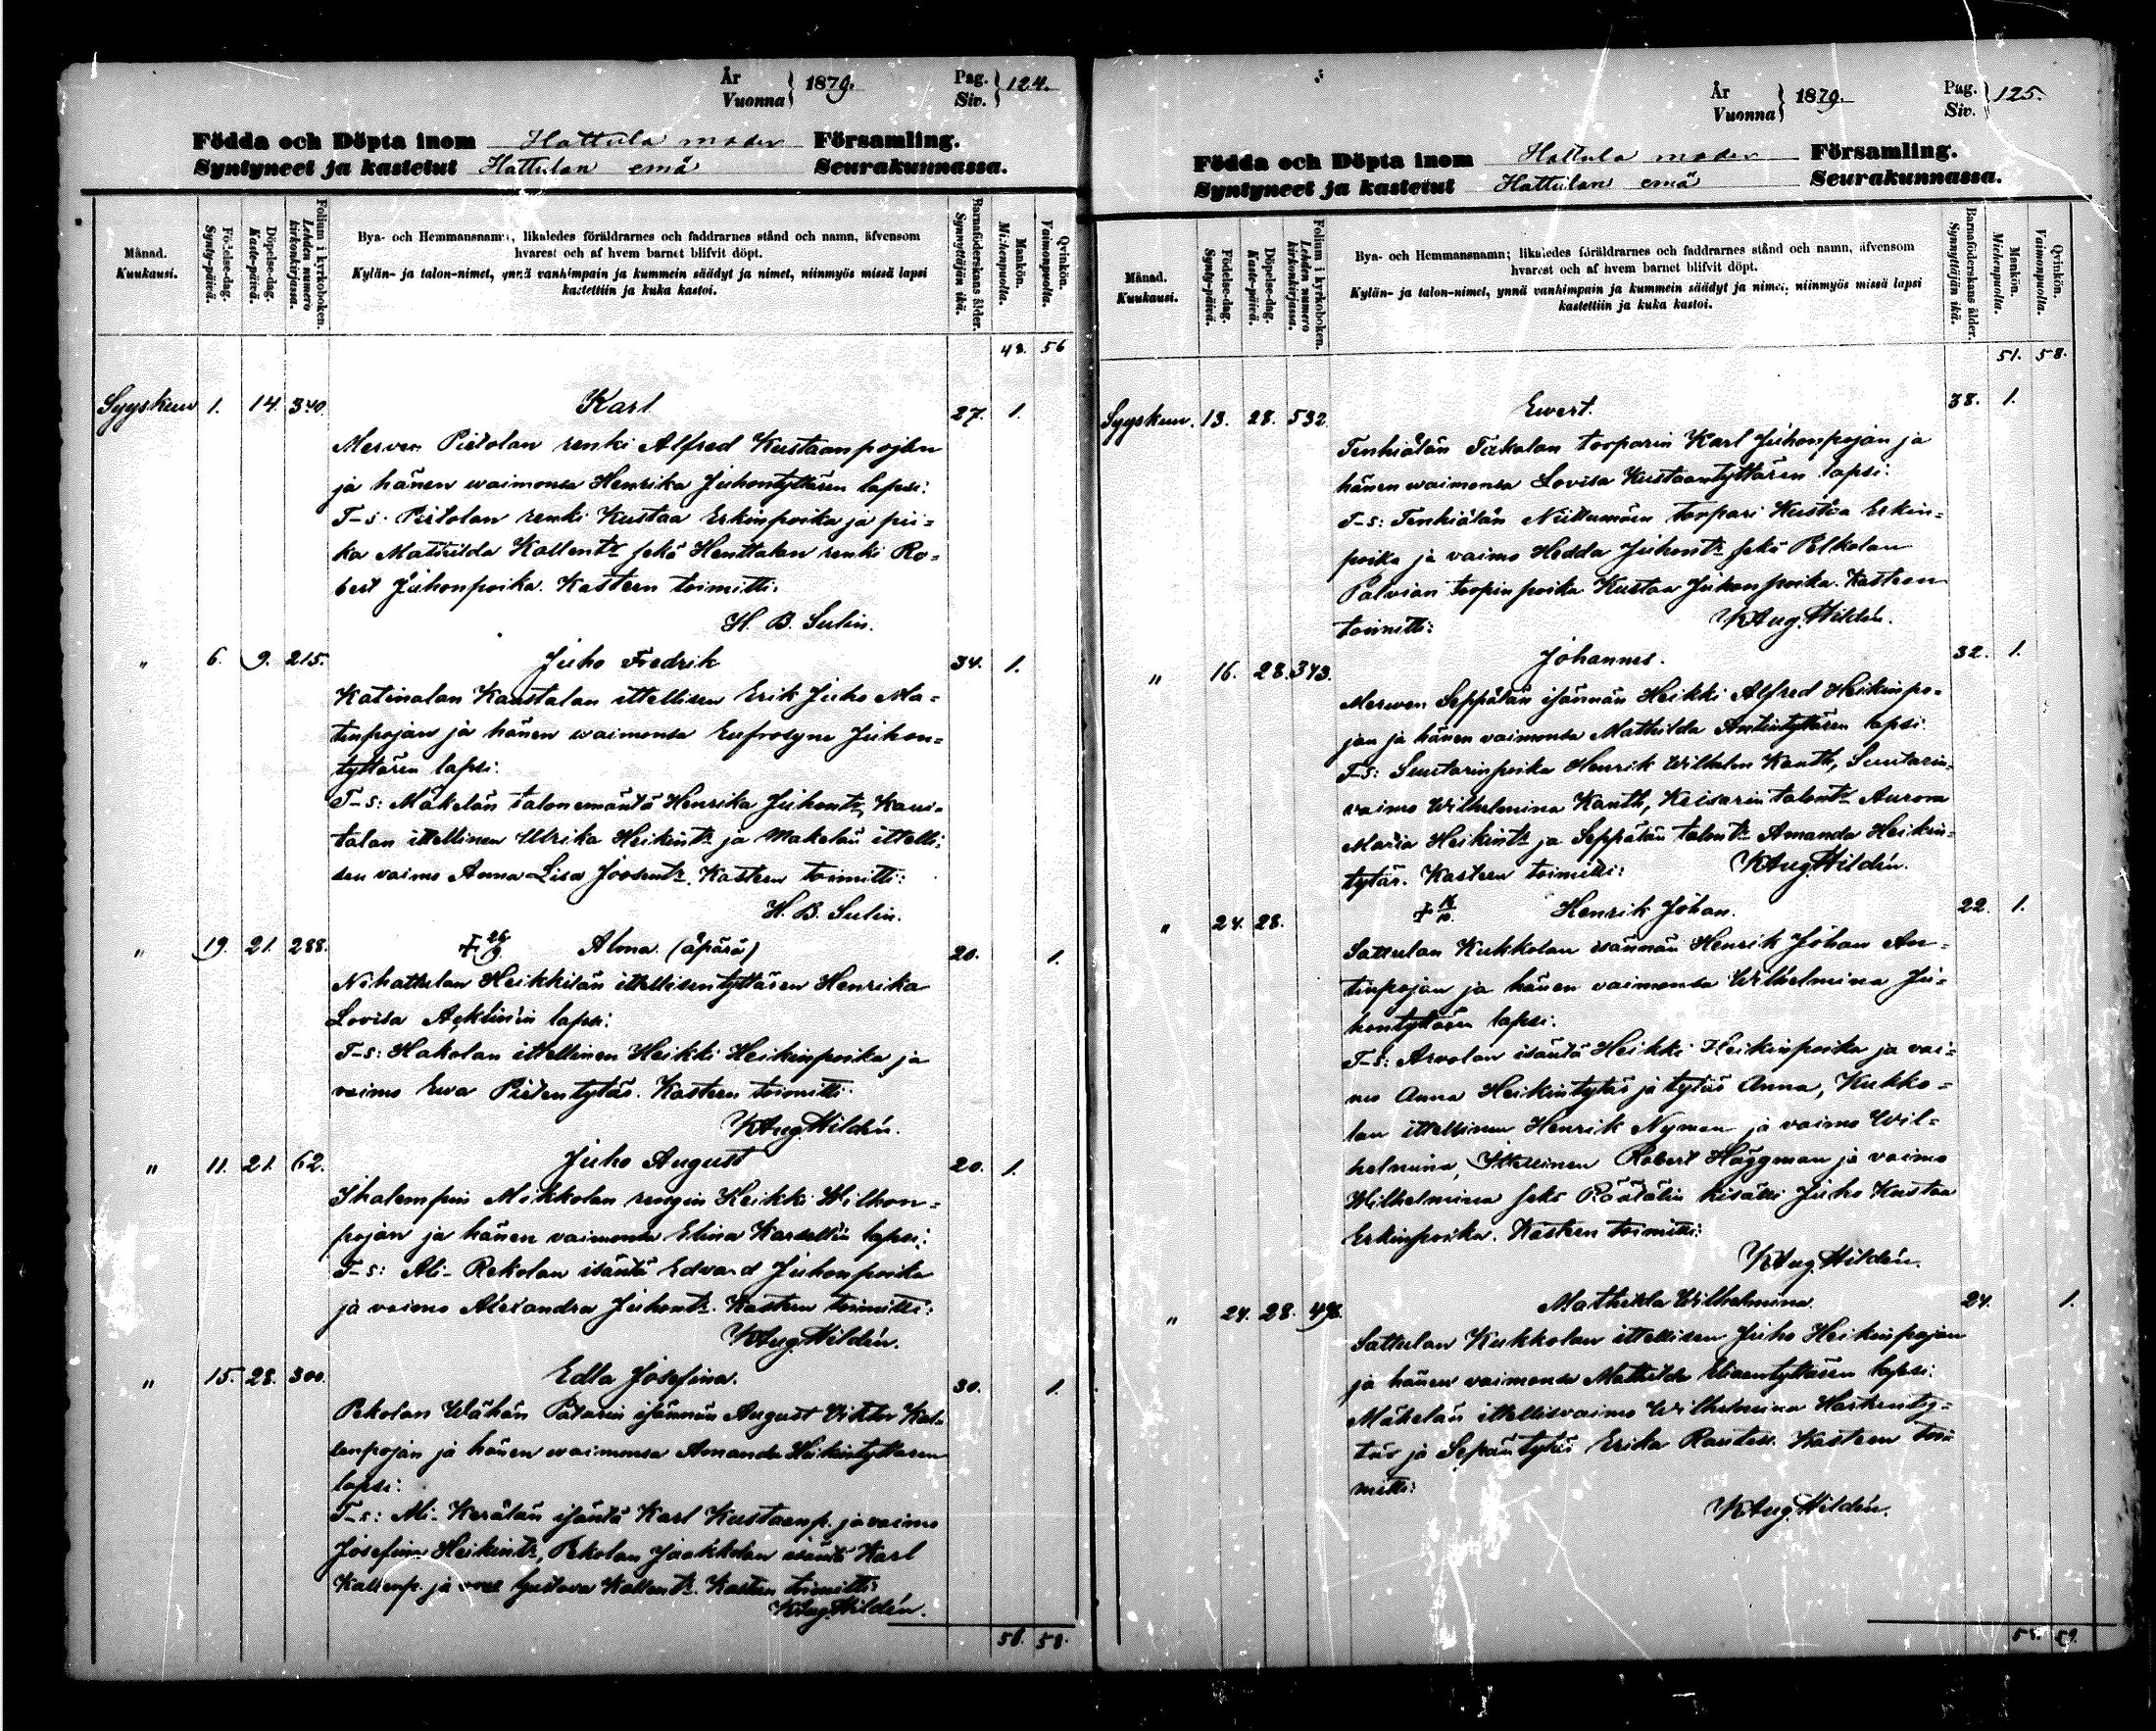 År
Vuonna } 1879. Pag.
Siv. } 124.
Födda och Döpta inom Hattula moder Församling.
Syntyneet ja kastetut Hattulan emä Seurakunnassa.
Månad.
Kuukausi.
Födelse-dag.
Synty-päivä.
Döpelse-dag.
Kaste-päivä.
Folium i kyrkoboken.
Lehden numero kirkonkirjassa.
Bya- och Hemmansnamn, likaledes föräldrarnes och faddrarnes stånd och namn, äfvensom
hvarest och af hvem barnet blifvit döpt.
Kylän- ja talon-nimet, ynnä vanhimpain ja kummein säädyt ja nimet, niinmyös missä lapsi
kastettiin ja kuka kastoi.
Barnaföderskans ålder.
Synnyttäjän ikä.
Mankön.
Miehenpuolta.
Qvinkön.
Vaimonpuolta.
48. 56
Syyskuu 1. 14. 340. Karl 27. 1.
Merven Pietolan renki Alfred Kustaanpojan
ja hänen waimonsa Henrika Juhontyttären lapsi:
T-s: Pietolan renki Kustaa Erkinpoika ja pii-
ka Mathilda Kallentr sekä Henttalan renki Ro-
bert Juhonpoika. Kasteen toimitti:
H. B. Sulin.
" 6. 9. 215. Juho Fredrik 34. 1.
Katinalan Kaustalan ittellisen Erik Juho Ma-
tinpojan ja hänen waimonsa Eufrosyne Juhon-
tyttären lapsi:
T-s: Mäkelän talonemäntä Henrika Juhontr, Kaus-
talan ittellinen Ulrika Heikintr ja Mäkelän ittelli-
sen vaimo Anna Lisa Joosentr. Kasteen toimitti:
H. B. Sulin.
" 19. 21. 288. + 26/9 Alma. (äpärä) 20. 1.
Nihattulan Heikkilän ittellisentyttären Henrika
Lovisa lapsi:
T-s: Hakolan ittellinen Heikki Heikinpoika ja
vaimo Ewa Pietentytär. Kasteen toimitti:
KAug. Hildén.
" 11. 21. 62. Juho August 20. 1.
Ihalempin Mikkolan rengin Heikki Wilhon-
pojan ja hänen vaimonsa Elina lapsi:
T-s: Ali-Rekolan isäntä Edvard Juhonpoika
ja vaimo Alexandra Juhontr. Kasteen toimitti:
KAug. Hildén.
" 15. 28. 300. Edla Josefina. 30. 1.
Pekolan Wähän Patarin isännän August Viktor Kal-
lenpojan ja hänen waimonsa Amanda Heikintyttären
lapsi:
T-s: Ali-Kerälän isäntä Karl Kustaanp. ja vaimo
Josefina Heikintr, Pekolan Jaakkolan isäntä Karl
Kallenp. ja Gustava Kallentr. Kasteen toimitti:
KAug. Hildén.
51. 58.
År
Vuonna } 1879. Pag.
Siv. } 125.
Födda och Döpta inom Hattula moder Församling.
Syntyneet ja kastetut Hattulan emä Seurakunnassa.
Månad.
Kuukausi.
Födelse-dag.
Synty-päivä.
Döpelse-dag.
Kaste-päivä.
Folium i kyrkoboken.
Lehden numero kirkonkirjassa.
Bya- och Hemmansnamn; likaledes föräldrarnes och faddrarnes stånd och namn, äfvensom
hvarest och af hvem barnet blifvit döpt.
Kylän- ja talon-nimet, ynnä vanhimpain ja kummein säädyt ja nimet, niinmyös missä lapsi
kastettiin ja kuka kastoi.
Barnaföderskans ålder.
Synnyttäjän ikä.
Mankön.
Miehenpuolta.
Qvinkön.
Vaimonpuolta.
51. 58.
Syyskuu. 13. 28. 532. Ewert. 38. 1.
Tenhiälän torparin Karl Juhonpojan ja
hänen waimonsa Lovisa Kustaantyttären lapsi:
T-s: Tenhiälän Niittumäen torpari Kustaa Erkin-
poika ja vaimo Hedda Juhontr sekä Pelkolan
Palvian torpinpoika Kustaa Juhonpoika. Kasteen
toimitti: KAug. Hildén.
" 16. 28. 343. Johannes. 32. 1.
Merwen Seppälän isännän Heikki Alfred Heikinpo-
jan ja hänen vaimonsa Mathilda Antintyttären lapsi.
T-s: Suutarinpoika Henrik Wilhelm Kanth, Suutarin-
vaimo Wilhelmina Kanth, Keisarin talontr Aurora
Maria Heikintr ja Seppälän talontr Amanda Heikin-
tytär. Kasteen toimitti: KAug. Hildén.
" 24. 28. + 16/10. Henrik Johan. 22. 1.
Sattulan Kukkolan isännän Henrik Johan An-
tinpojan ja hänen vaimonsa Wilhelmina Ju-
hontyttären lapsi:
T-s: Arvolan isäntä Heikki Heikinpoika ja vai-
mo Anna Heikintytär ja tytär Anna, Kukko-
lan ittellinen Henrik Nyman ja vaimo Wil-
helmina, Ittellinen Robert Häggman ja vaimo
Wilhelmina sekä Räätälin kisälli Juho Kustaa
Erkinpoika. Kasteen toimitti:
KAug. Hildén.
" 24. 28. 496. Mathilda Wilhelmina. 24. 1.
Sattulan Kukkolan ittellisen Juho Heikinpojan
ja hänen vaimonsa Mathilda Eliaentyttären lapsi:
Mäkelän ittellisvaimo Wilhelmina Heikinty-
tär ja Sepäntytär Erika Rautell. Kasteen toi-
mitti:
KAug. Hildén.
55. 59.